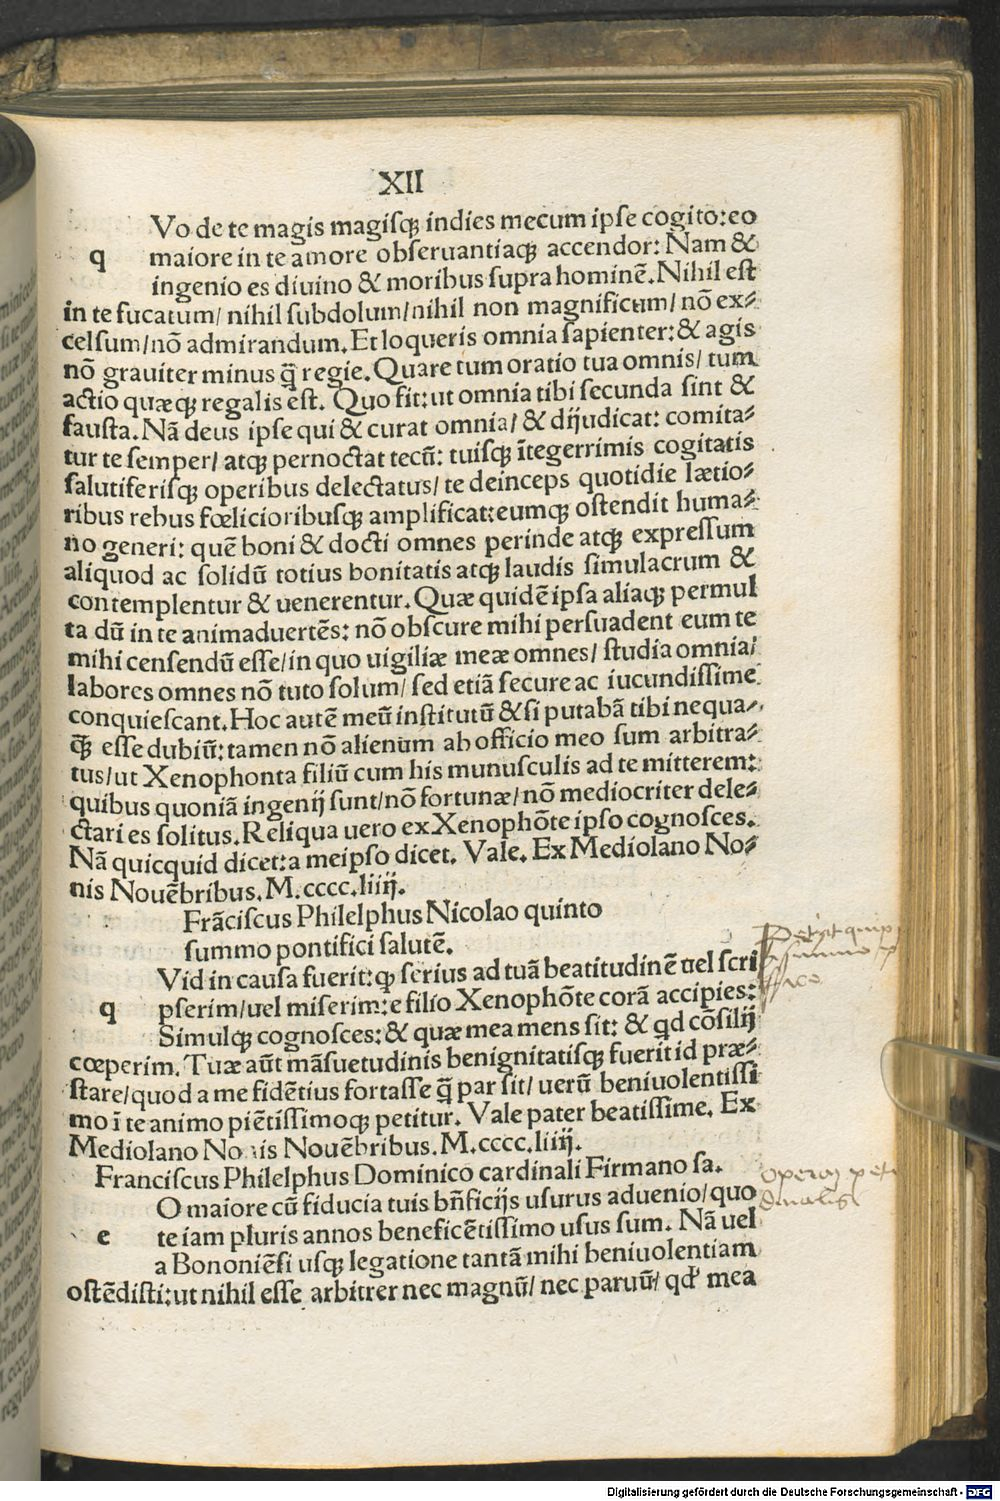 XII
Vo de te magis magisqꝫ indies mecum ipse cogito:eo
q maiore in te amore obseruantiaqꝫ accendor: Nam &
ingenio es diuino & moribus supra hominē.Nihil est
in te fucatum/ nihil subdolum/nihil non magnificum/ nō ex⸗
celsum/nō admirandum.Et loqueris omnia sapienter:& agis
nō grauiter minus q̄ regie.Quare tum oratio tua omnis/ tum
actio quæqꝫ regalis est. Quo fit:ut omnia tibi secunda sint &
fausta.Nā deus ipse qui & curat omnia/ & dijudicat: comita⸗
tur te semper/ atqꝫ pernoctat tecū: tuisqꝫ ītegerrimis cogitatis
salutiferisqꝫ operibus delectatus/ te deinceps quotidie lætio⸗
ribus rebus fœlicioribusqꝫ amplificat:eumqꝫ ostendit huma⸗
no generi: quē boni & docti omnes perinde atqꝫ expressum
aliquod ac solidū totius bonitatis atqꝫ laudis simulacrum &
contemplentur & uenerentur.Quæ quidē ipsa aliaqꝫ permul
ta dū in te animaduertēs: nō obscure mihi persuadent eum te
mihi censendū esse/in quo uigiliæ meæ omnes/ studia omnia/
labores omnes nō tuto solum/ sed etiā secure ac iucundissime
conquiescant.Hoc autē meū institutū &si putabā tibi nequa⸗
q̄ꝫ esse dubiū:tamen nō alienum ab officio meo sum arbitra⸗
tus/ut Xenophonta filiū cum his munusculis ad te mitterem:
quibus quoniā ingenij sunt/nō fortunæ/nō mediocriter dele⸗
ctari es solitus.Reliqua uero ex Xenophōte ipso cognosces.
Nā quicquid dicet:a meipso dicet. Vale. Ex Mediolano No⸗
nis Nouēbribus.M.cccc.liiij.
Frāciscus Philelphus Nicolao quinto
summo pontifici salutē.
Vid in causa fuerit:qꝫ serius ad tuā beatitudinē uel scri
q pserim/uel miserim:e filio Xenophōte corā accipies:
Simulqꝫ cognosces:& quæ mea mens sit: & qd cōsilij
cœperim. Tuæ aūt māsuetudinis benignitatisqꝫ fuerit id præ⸗
stare/quod a me fidētius fortasse q̄ par sit/ uerū beniuolentissi
mo ī te animo piētissimoqꝫ petitur. Vale pater beatissime. Ex
Mediolano No is Nouēbribus.M.cccc.liiij.
Franciscus Philelphus Dominico cardinali Firmano sa.
O maiore cū fiducia tuis bn̄ficijs usurus aduenio/quo
e te iam pluris annos beneficētissimo usus sum. Nā uel
a Bononiēsi usqꝫ legatione tantā mihi beniuolentiam
ostēdisti:ut nihil esse arbitrer nec magnū/ nec paruū/ qd' mea
Digitalisierung gefördert durch die Deutsche Forschungsgemeinschaft - DFG